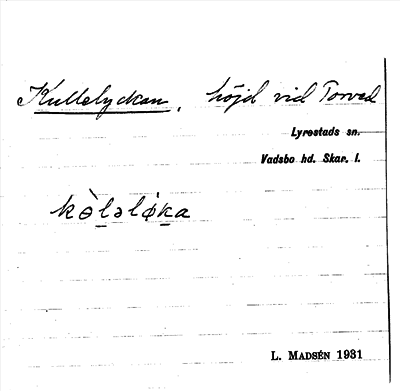 Kullelyckan, höjd vid Torved
Lyrestads sn.
Vadsbo hd. Skar. l.
kɵ̀lələ́ka
L. MADSÉN 1931